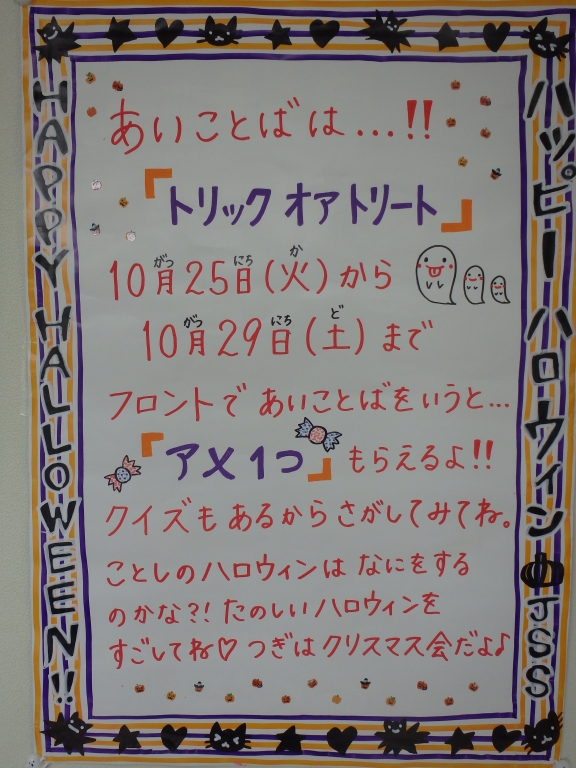 HAPPY HALLOWEEN!!
ハッピーハロウィン JSS
あいことばは…!!
「トリック オァ トリート」
10月25日(火)から
がつ にち か
10月29日(土)まで
がつ にち ど
フロントで あいことばをいうと…
「アメ1つ」もらえるよ!!
クイズもあるからさがしてみてね。
ことしのハロウィンは なにをする
のかな?! たのしいハロウィンを
すごしてね♡ つぎはクリスマス会だよ♪